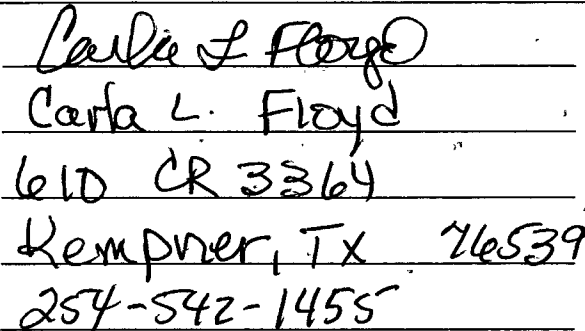 Carla L Floyd
Carla L. Floyd
610 CR 3364
Kempner, Tx 76539
254-542-1455